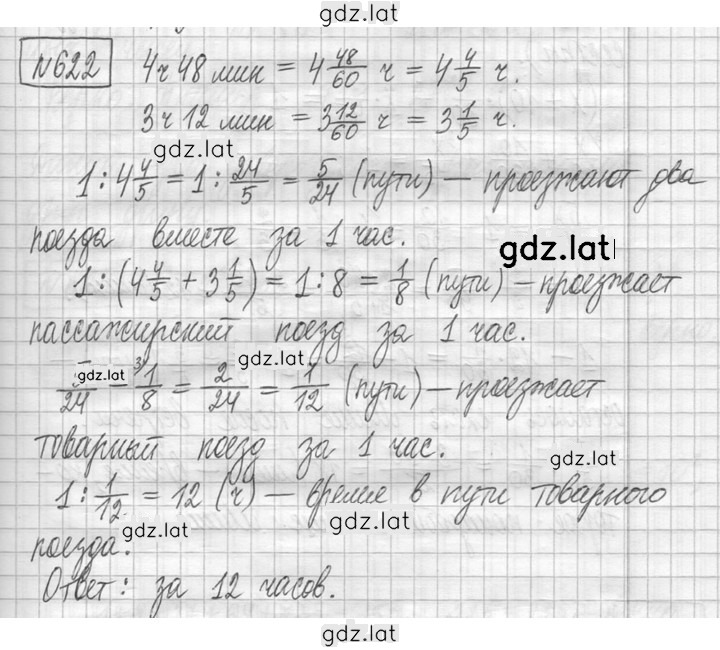 gdz.lat
№622 4 ч 48 мин = 4 48/60 ч = 4 4/5 ч.
3 ч 12 мин = 3 12/60 ч = 3 1/5 ч.
gdz.lat
1 : 4 4/5 = 1 : 24/5 = 5/24 (пути) — проезжают два
поезда вместе за 1 час.
gdz.lat
1 : (4 4/5 + 3 1/5) = 1 : 8 = 1/8 (пути) — проезжает
пассажирский поезд за 1 час.
gdz.lat
gdz.lat
/24 − 3) 1/8 = 2/24 = 1/12 (пути) — проезжает
товарный поезд за 1 час.
gdz.lat
1 : 1/12 = 12 (ч) — время в пути товарного
gdz.lat
поезда.
gdz.lat
Ответ: за 12 часов.
gdz.lat